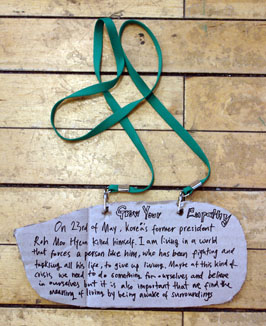 Grow Your Empathy
On 23rd of May, Korea's former president
Roh Moo Hyun killed himself. I am living in a world
that forces a person like him, who has been fighting and
tackling all his life, to give up living. Maybe at this kind of
crisis, we need to do something for ourselves and believe
in ourselves but it is also important that we find the
meaning of living by being aware of surroundings